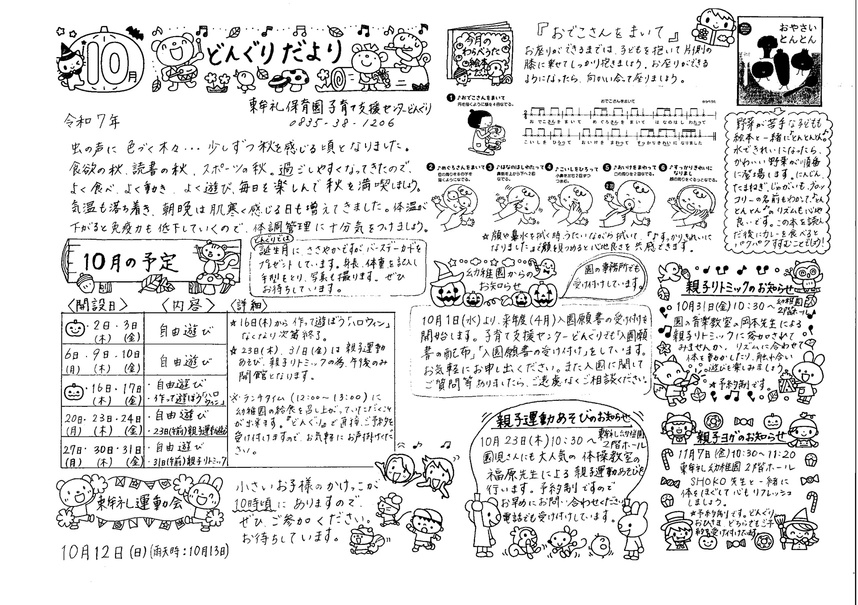 10月
どんぐりだより
東牟礼保育園子育て支援センターどんぐり
0835-38-1206
令和7年
虫の声に色づく木々・・・少しずつ秋を感じる頃となりました。
食欲の秋、読書の秋、スポーツの秋。過ごしやすくなってきたので、
よく食べ、よく動き、よく遊び、毎日を楽しんで秋を満喫しましょう。
気温も落ち着き、朝晩は肌寒く感じる日も増えてきました。体温が
下がると免疫力も低下していくので、体調管理に十分気をつけましょう。
今月の
わらべうた
絵本
『おでこさんをまいて』
お座りができるまでは、子どもを抱いて片側の
膝に乗せてしっかり抱きましょう。お座りができる
ようになったら、向かい合って座りましょう。
1 ♪おでこさんをまいて
おでこさんをまいて
2 ♪めぐろさんをまいて
3 ♪はなのはしわたって
4 ♪こいしをひろって
5 ♪おいけをまわって
6 ♪すっかりきれいに
なりました
☆顔や鼻水を拭く時、うたいながら拭いて、「♪すっかりきれいに
なりました」で顔を見つめると心地良さを共感できます。
おやさい
とんとん
野菜が苦手な子ども
も絵本と一緒に"とんとんとん"
水できれいになったら、
かわいい野菜が順番
に登場します。にんじん、
たまねぎ、じゃがいも、ブロッ
コリーの名前もわかって、"とん
とんとん"のリズムも心地
良いです。この本を読ん
だ後にカレーを食べると
パクパクすすむことでしょう!
10月の予定
どんぐりでは
誕生月に、ささやかですがバースデーカードを
プレゼントしています。身長、体重を記入し
手形をとり、写真も撮ります。ぜひ
お待ちしています。
〈開設日〉 〈内容〉 〈詳細〉
・2日・3日
(木) (金)
自由遊び
6日・9日・10日
(月) (木) (金)
自由遊び
・16日・17日
(木) (金)
・自由遊び
・作って遊ぼう「ハロウィン」
20日・23日・24日
(月) (木) (金)
・自由遊び
・23日(午前)親子運動遊び
27日・30日・31日
(月) (木) (金)
・自由遊び
・31日(午前)親子リトミック
★16日(木)から作って遊ぼう「ハロウィン」
なくなり次第終了。
★23日(木)、31日(金)は親子運動
あそび、親子リトミックの為、午後のみ
開館となります。
※ランチタイム(12:00~13:00)に
幼稚園の給食を召し上がっていただくこと
が出来ます。「どんぐり」で直接、ご予約を
受け付けますので、お気軽にお声掛けくだ
さい。
幼稚園からの
お知らせ
園の事務所でも
受け付けています。
10月1日(水)より、来年度(4月)入園願書の受け付けを
開始します。子育て支援センターどんぐりでも「入園願
書の配布」「入園願書の受け付け」をしています。
お気軽にお申し出ください。また入園に関して
ご質問等ありましたら、ご遠慮なくご相談ください。
親子リトミックのお知らせ
10月31日(金)10:30~ 幼稚園
2階ホール
園の音楽教室の岡本先生による
親子リトミックに参加されて
みませんか。リズムに合わせて
体を動かしたり、触れ合い
遊びも楽しみましょう。
★予約制です。
東牟礼運動会
10月12日(日)(雨天時:10月13日)
小さいお子様のかけっこが
10時頃にありますので、
ぜひ、ご参加ください。
お待ちしています。
親子運動あそびのお知らせ
10月23日(木)10:30~ 東牟礼幼稚園
2階ホール
園児さんにも大人気の体操教室の
福原先生による親子運動あそびを
行います。予約制ですので
お早めにお問い合わせください。
電話でも受け付けています。
親子ヨガのお知らせ
11月7日(金)10:30~11:20
東牟礼幼稚園2階ホール
SHOKO先生と一緒に
体をほぐして心もリフレッシュ
しましょう。
★予約制です。どんぐり、
おひさまどちらでもご予
約を受け付けています。